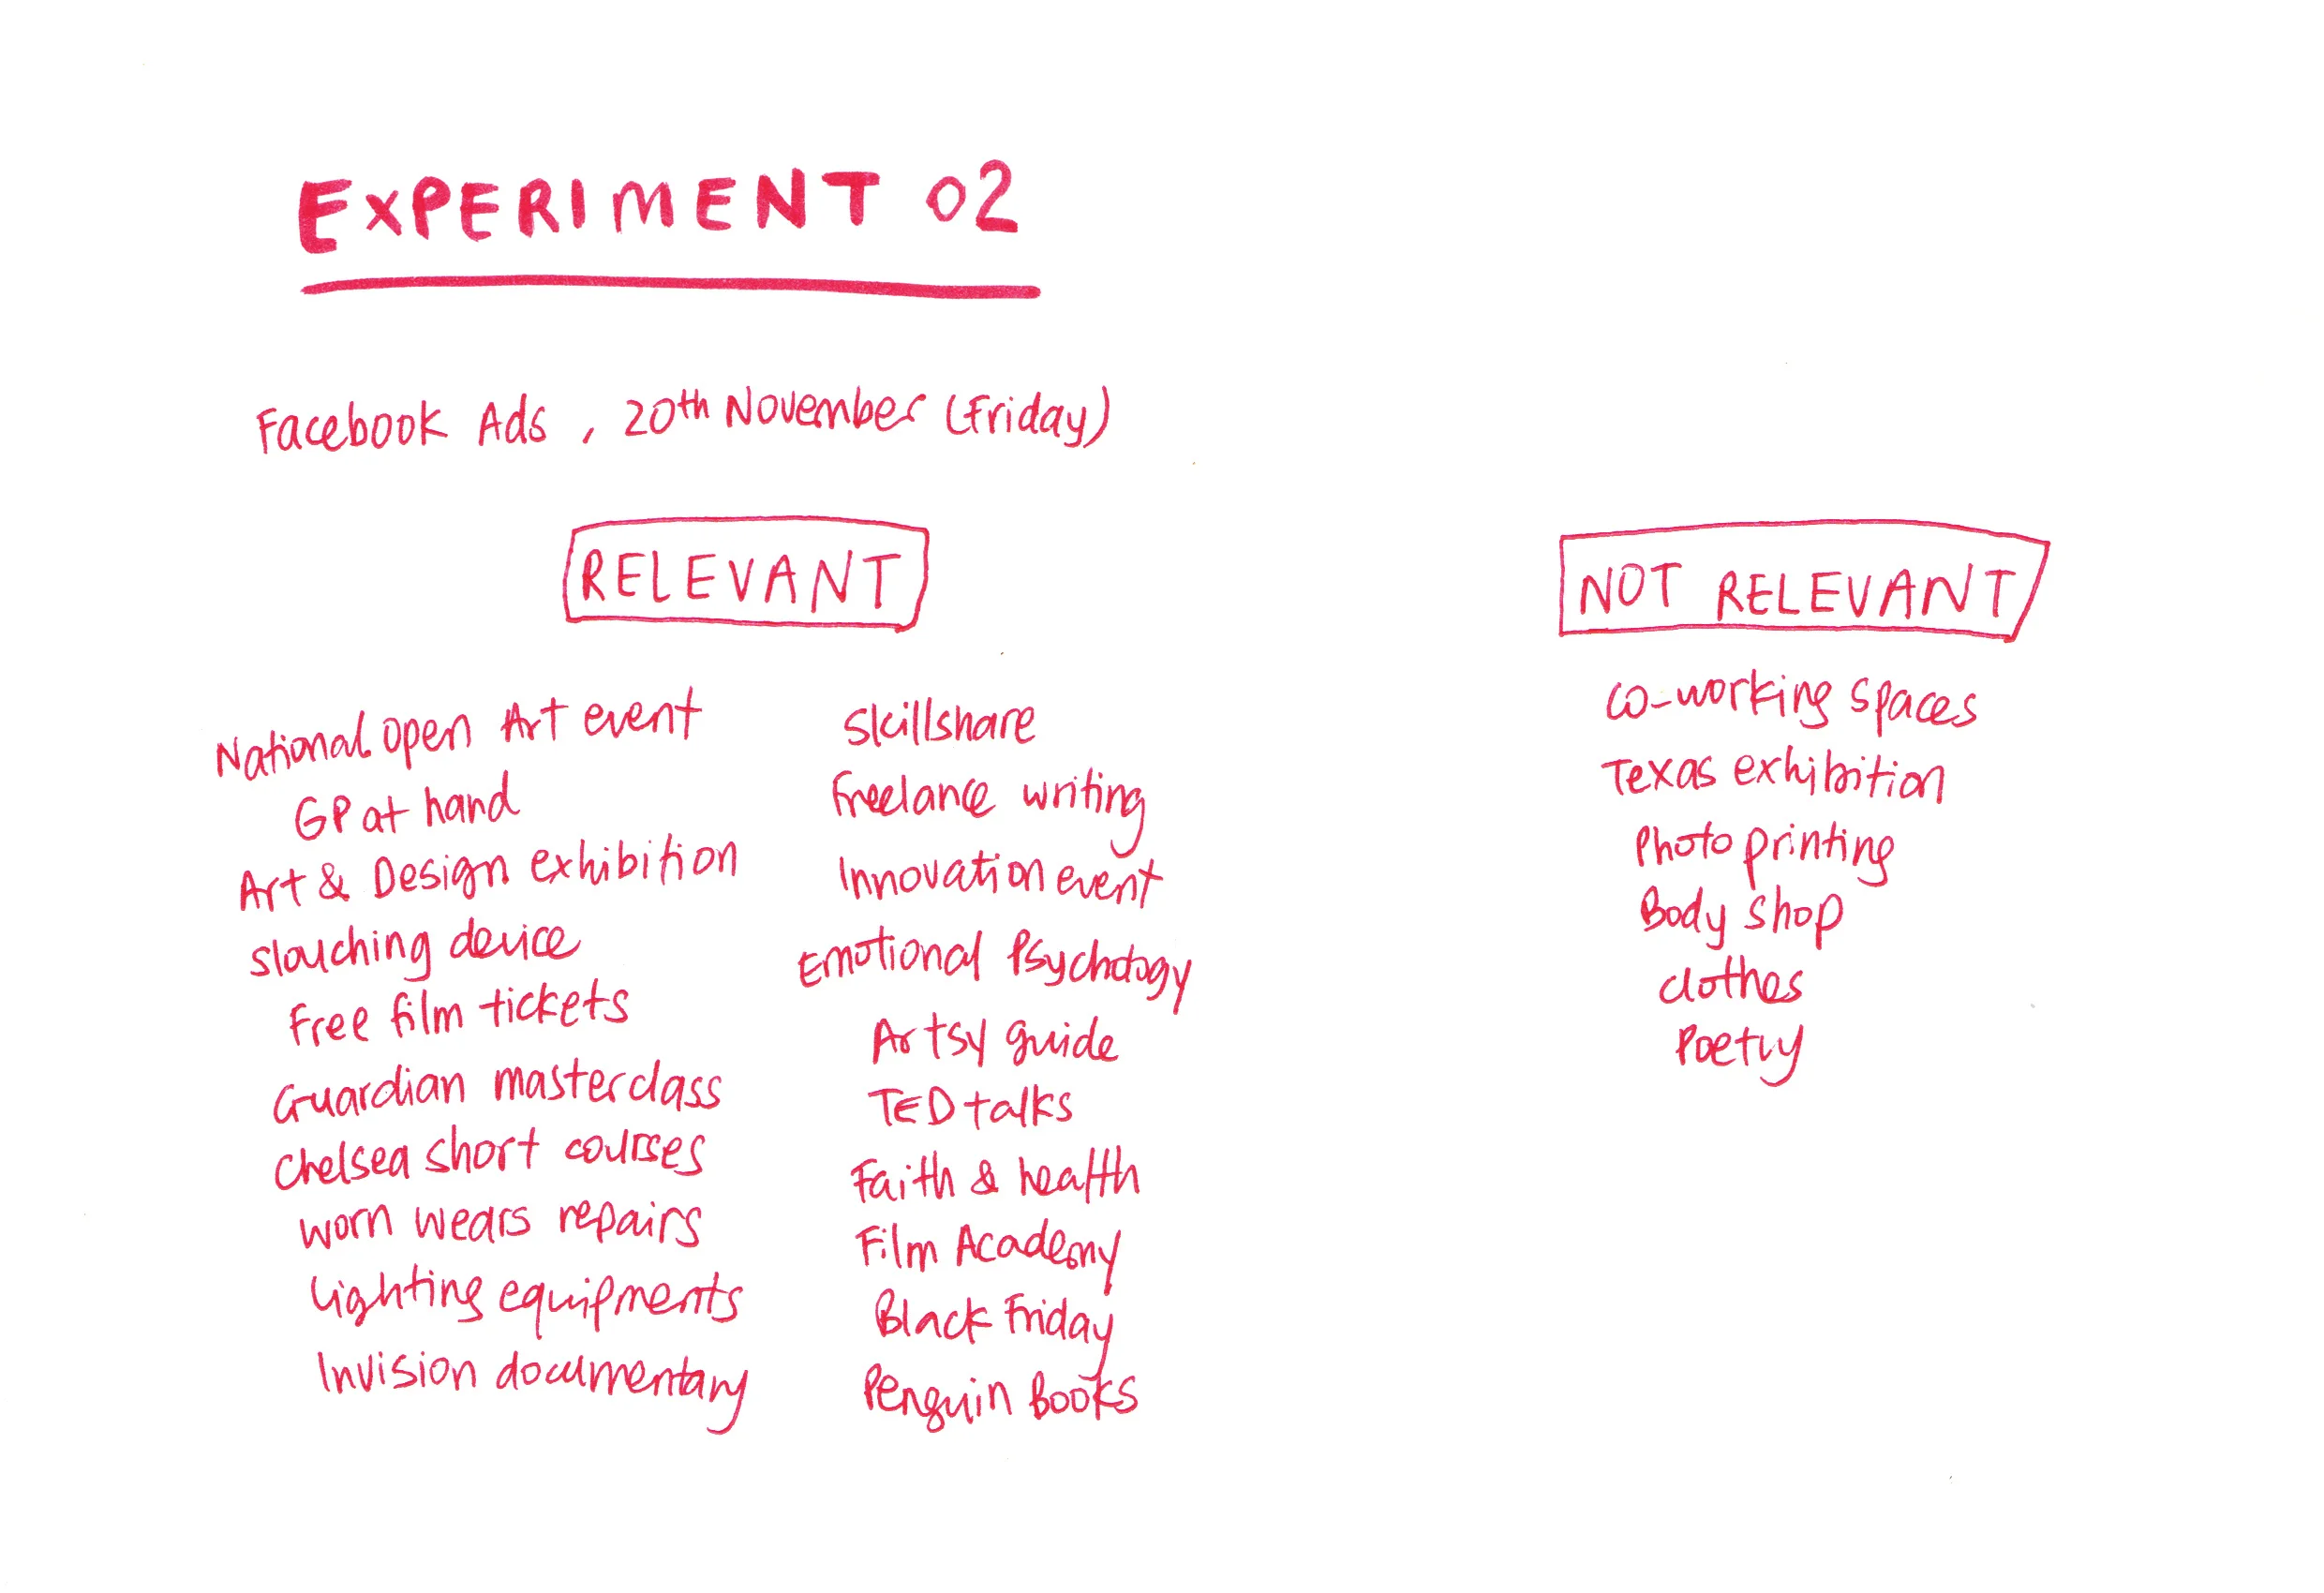 EXPERIMENT 02
Facebook Ads, 20th November (Friday)
RELEVANT
National open Art event
GP at hand
Art & Design exhibition
slouching device
Free film tickets
Guardian masterclass
Chelsea short courses
worn wears repairs
Lighting equipments
Invision documentary
Skillshare
Freelance writing
Innovation event
Emotional Psychology
Artsy guide
TED talks
Faith & health
Film Academy
Black Friday
Penguin Books
NOT RELEVANT
co-working spaces
Texas exhibition
Photo printing
Body shop
clothes
Poetry